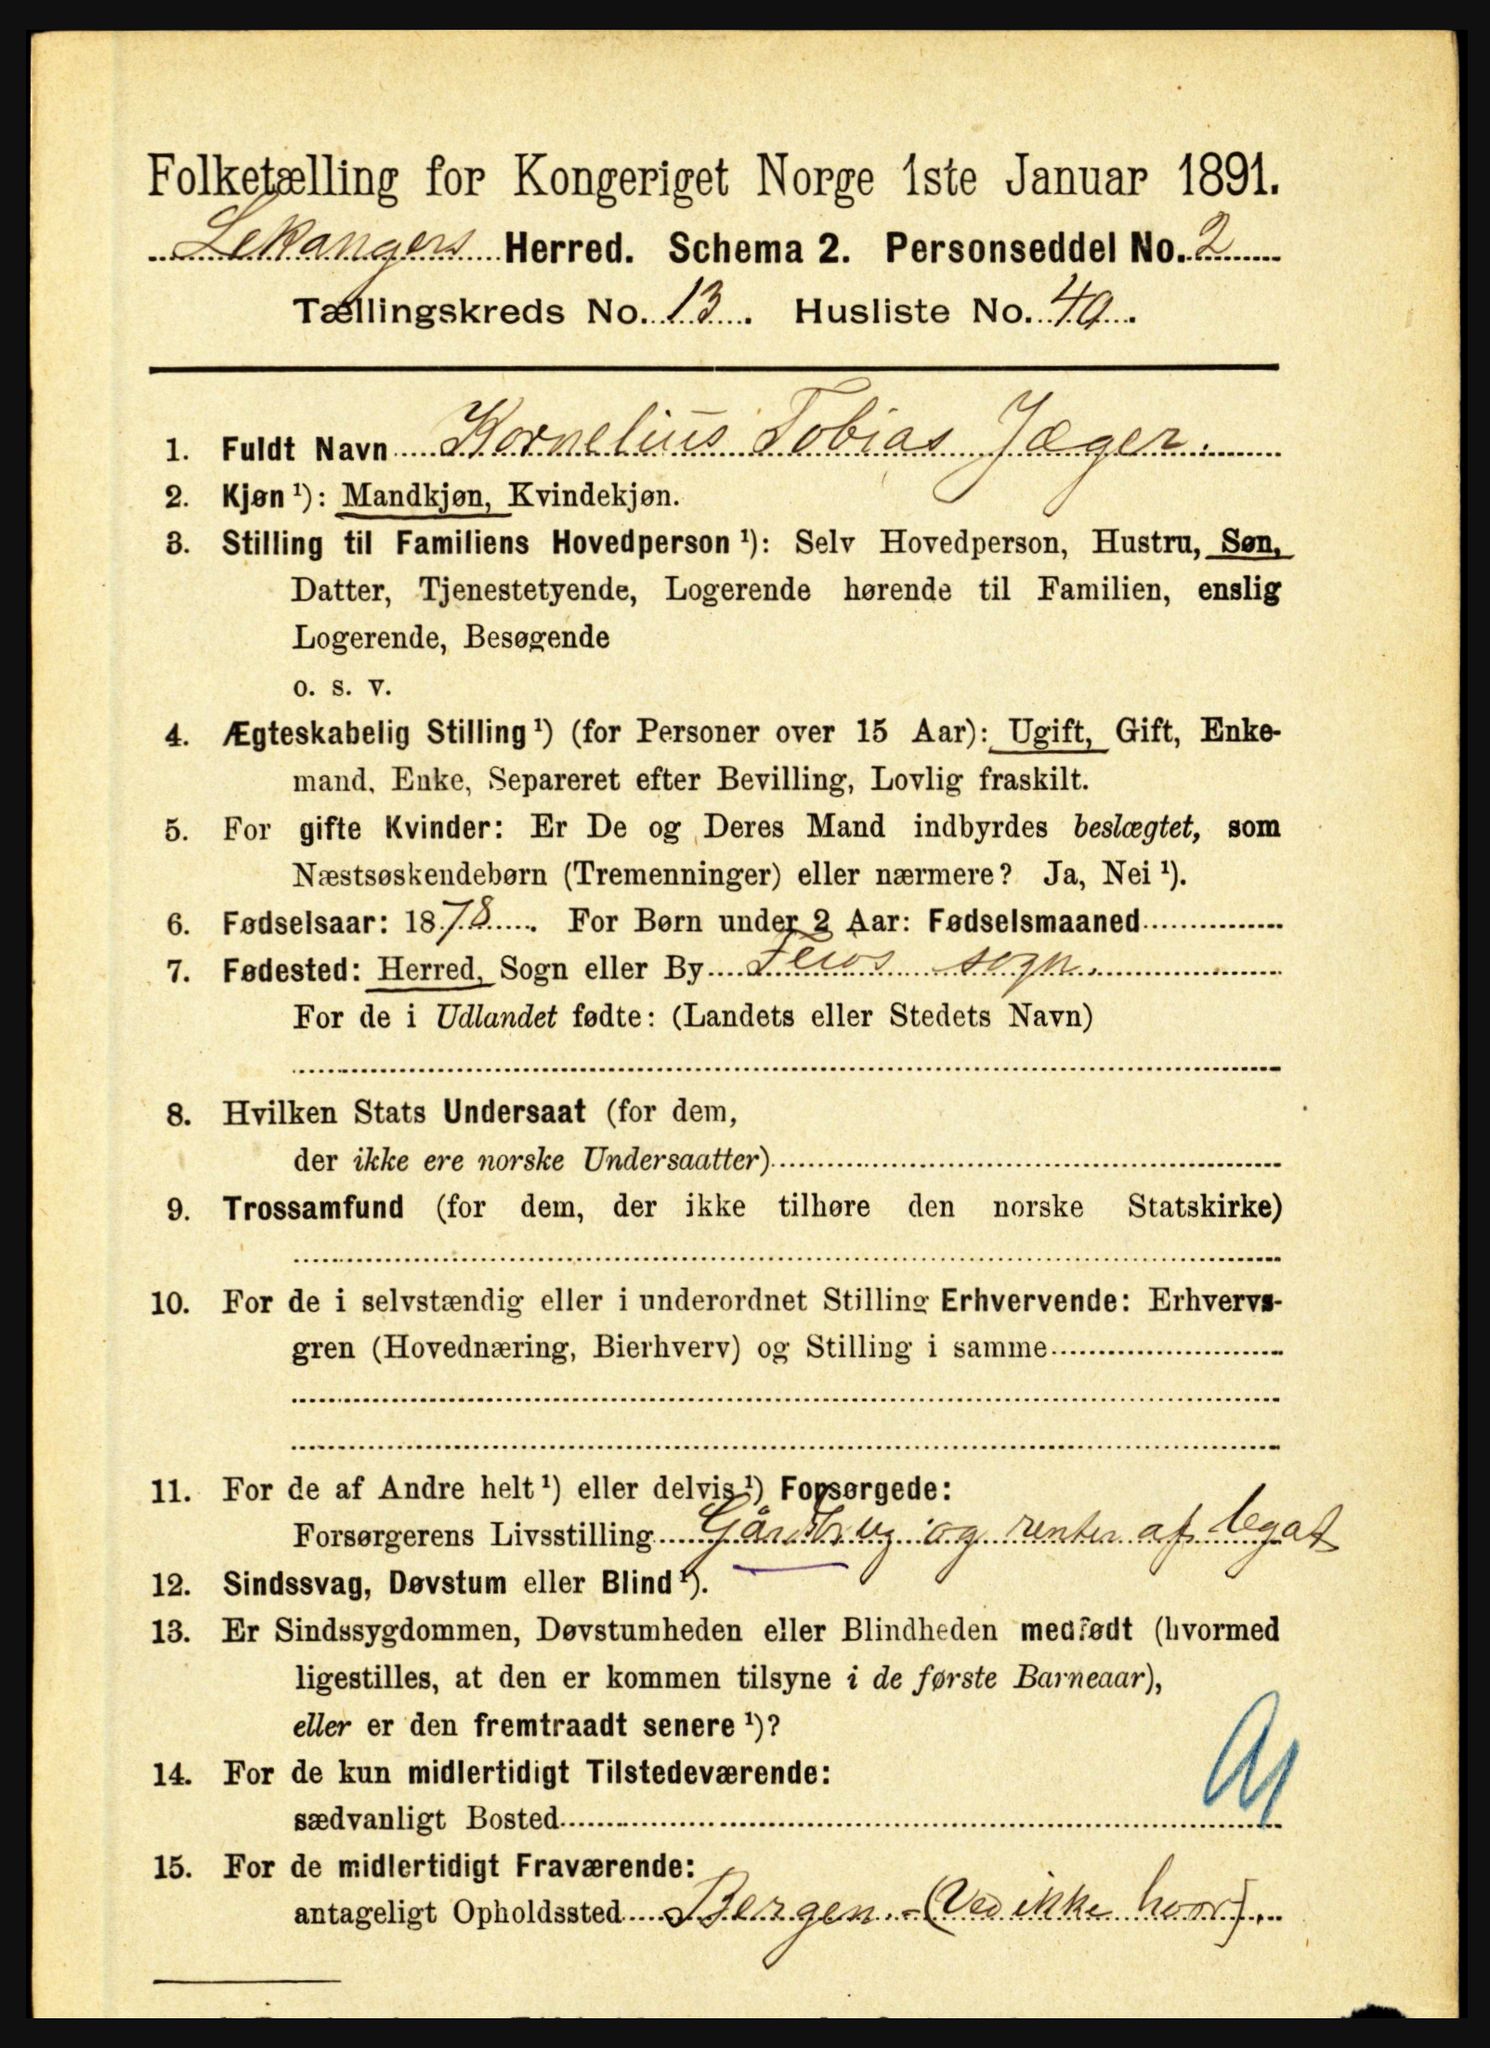 Folketælling for Kongeriget Norge 1ste Januar 1891.
Lekangers Herred. Schema 2. Personseddel No. 2
Tællingskreds No. 13. Husliste No. 40.
1. Fuldt Navn Kornelius Tobias Jæger.
2. Kjøn ¹): Mandkjøn, Kvindekjøn.
3. Stilling til Familiens Hovedperson ¹): Selv Hovedperson, Hustru, Søn,
Datter, Tjenestetyende, Logerende hørende til Familien, enslig
Logerende, Besøgende
o. s. v.
4. Ægteskabelig Stilling ¹) (for Personer over 15 Aar): Ugift, Gift, Enke-
mand, Enke, Separeret efter Bevilling, Lovlig fraskilt.
5. For gifte Kvinder: Er De og Deres Mand indbyrdes beslægtet, som
Næstsøskendebørn (Tremenninger) eller nærmere? Ja, Nei ¹).
6. Fødselsaar: 1878. For Børn under 2 Aar: Fødselsmaaned
7. Fødested: Herred, Sogn eller By Feios sogn.
For de i Udlandet fødte: (Landets eller Stedets Navn)
8. Hvilken Stats Undersaat (for dem,
der ikke ere norske Undersaatter)
9. Trossamfund (for dem, der ikke tilhøre den norske Statskirke)
10. For de i selvstændig eller i underordnet Stilling Erhvervende: Erhvervs-
gren (Hovednæring, Bierhverv) og Stilling i samme
11. For de af Andre helt ¹) eller delvis ¹) Forsørgede:
Forsørgerens Livsstilling Gårdbrug og renter af legat
12. Sindssvag, Døvstum eller Blind ¹).
13. Er Sindssygdommen, Døvstumheden eller Blindheden medfødt (hvormed
ligestilles, at den er kommen tilsyne i de første Barneaar),
eller er den fremtraadt senere ¹)?
14. For de kun midlertidigt Tilstedeværende:
sædvanligt Bosted
15. For de midlertidigt Fraværende:
antageligt Opholdssted Bergen. - (Ved ikke hvor).